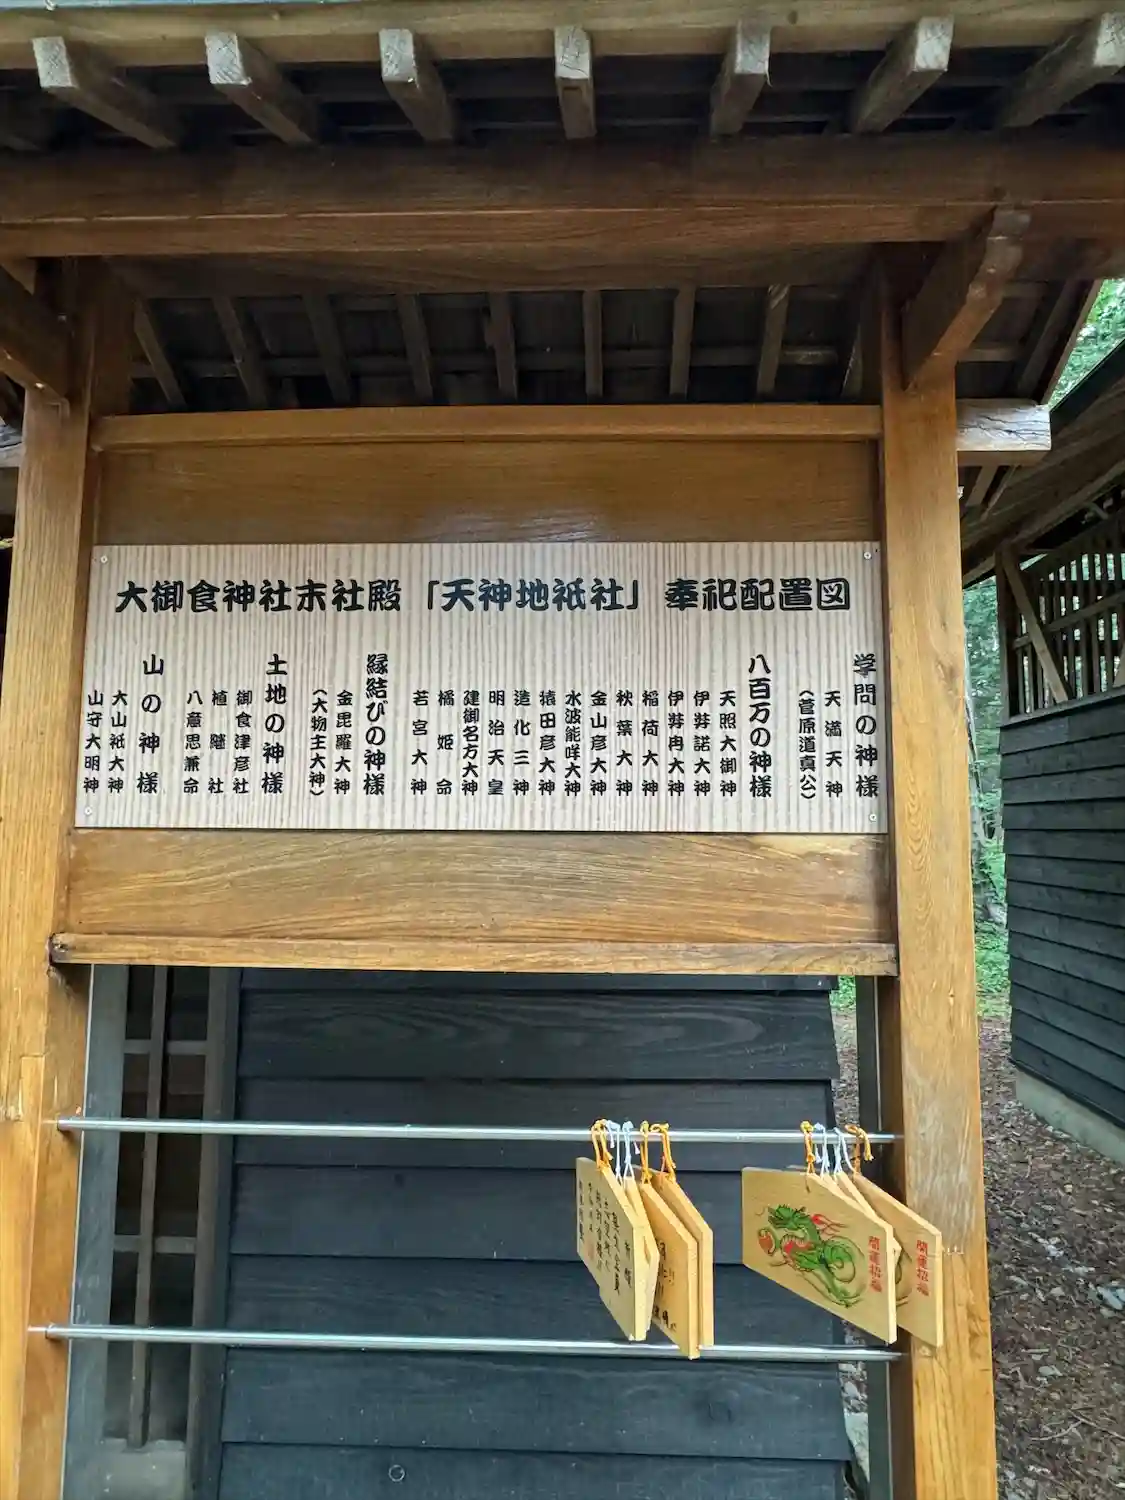 大御食神社末社殿「天神地祇社」奉祀配置図
学問の神様
天満天神
(菅原道真公)
八百万の神様
天照大御神
伊弉諾大神
伊弉冉大神
稲荷大神
秋葉大神
金山彦大神
水波能咩大神
猿田彦大神
造化三神
明治天皇
建御名方大神
橘姫命
若宮大神
縁結びの神様
金毘羅大神
(大物主大神)
土地の神様
御食津彦社
植継社
八意思兼命
山の神様
大山祇大神
山守大明神
開運招福
開運招福